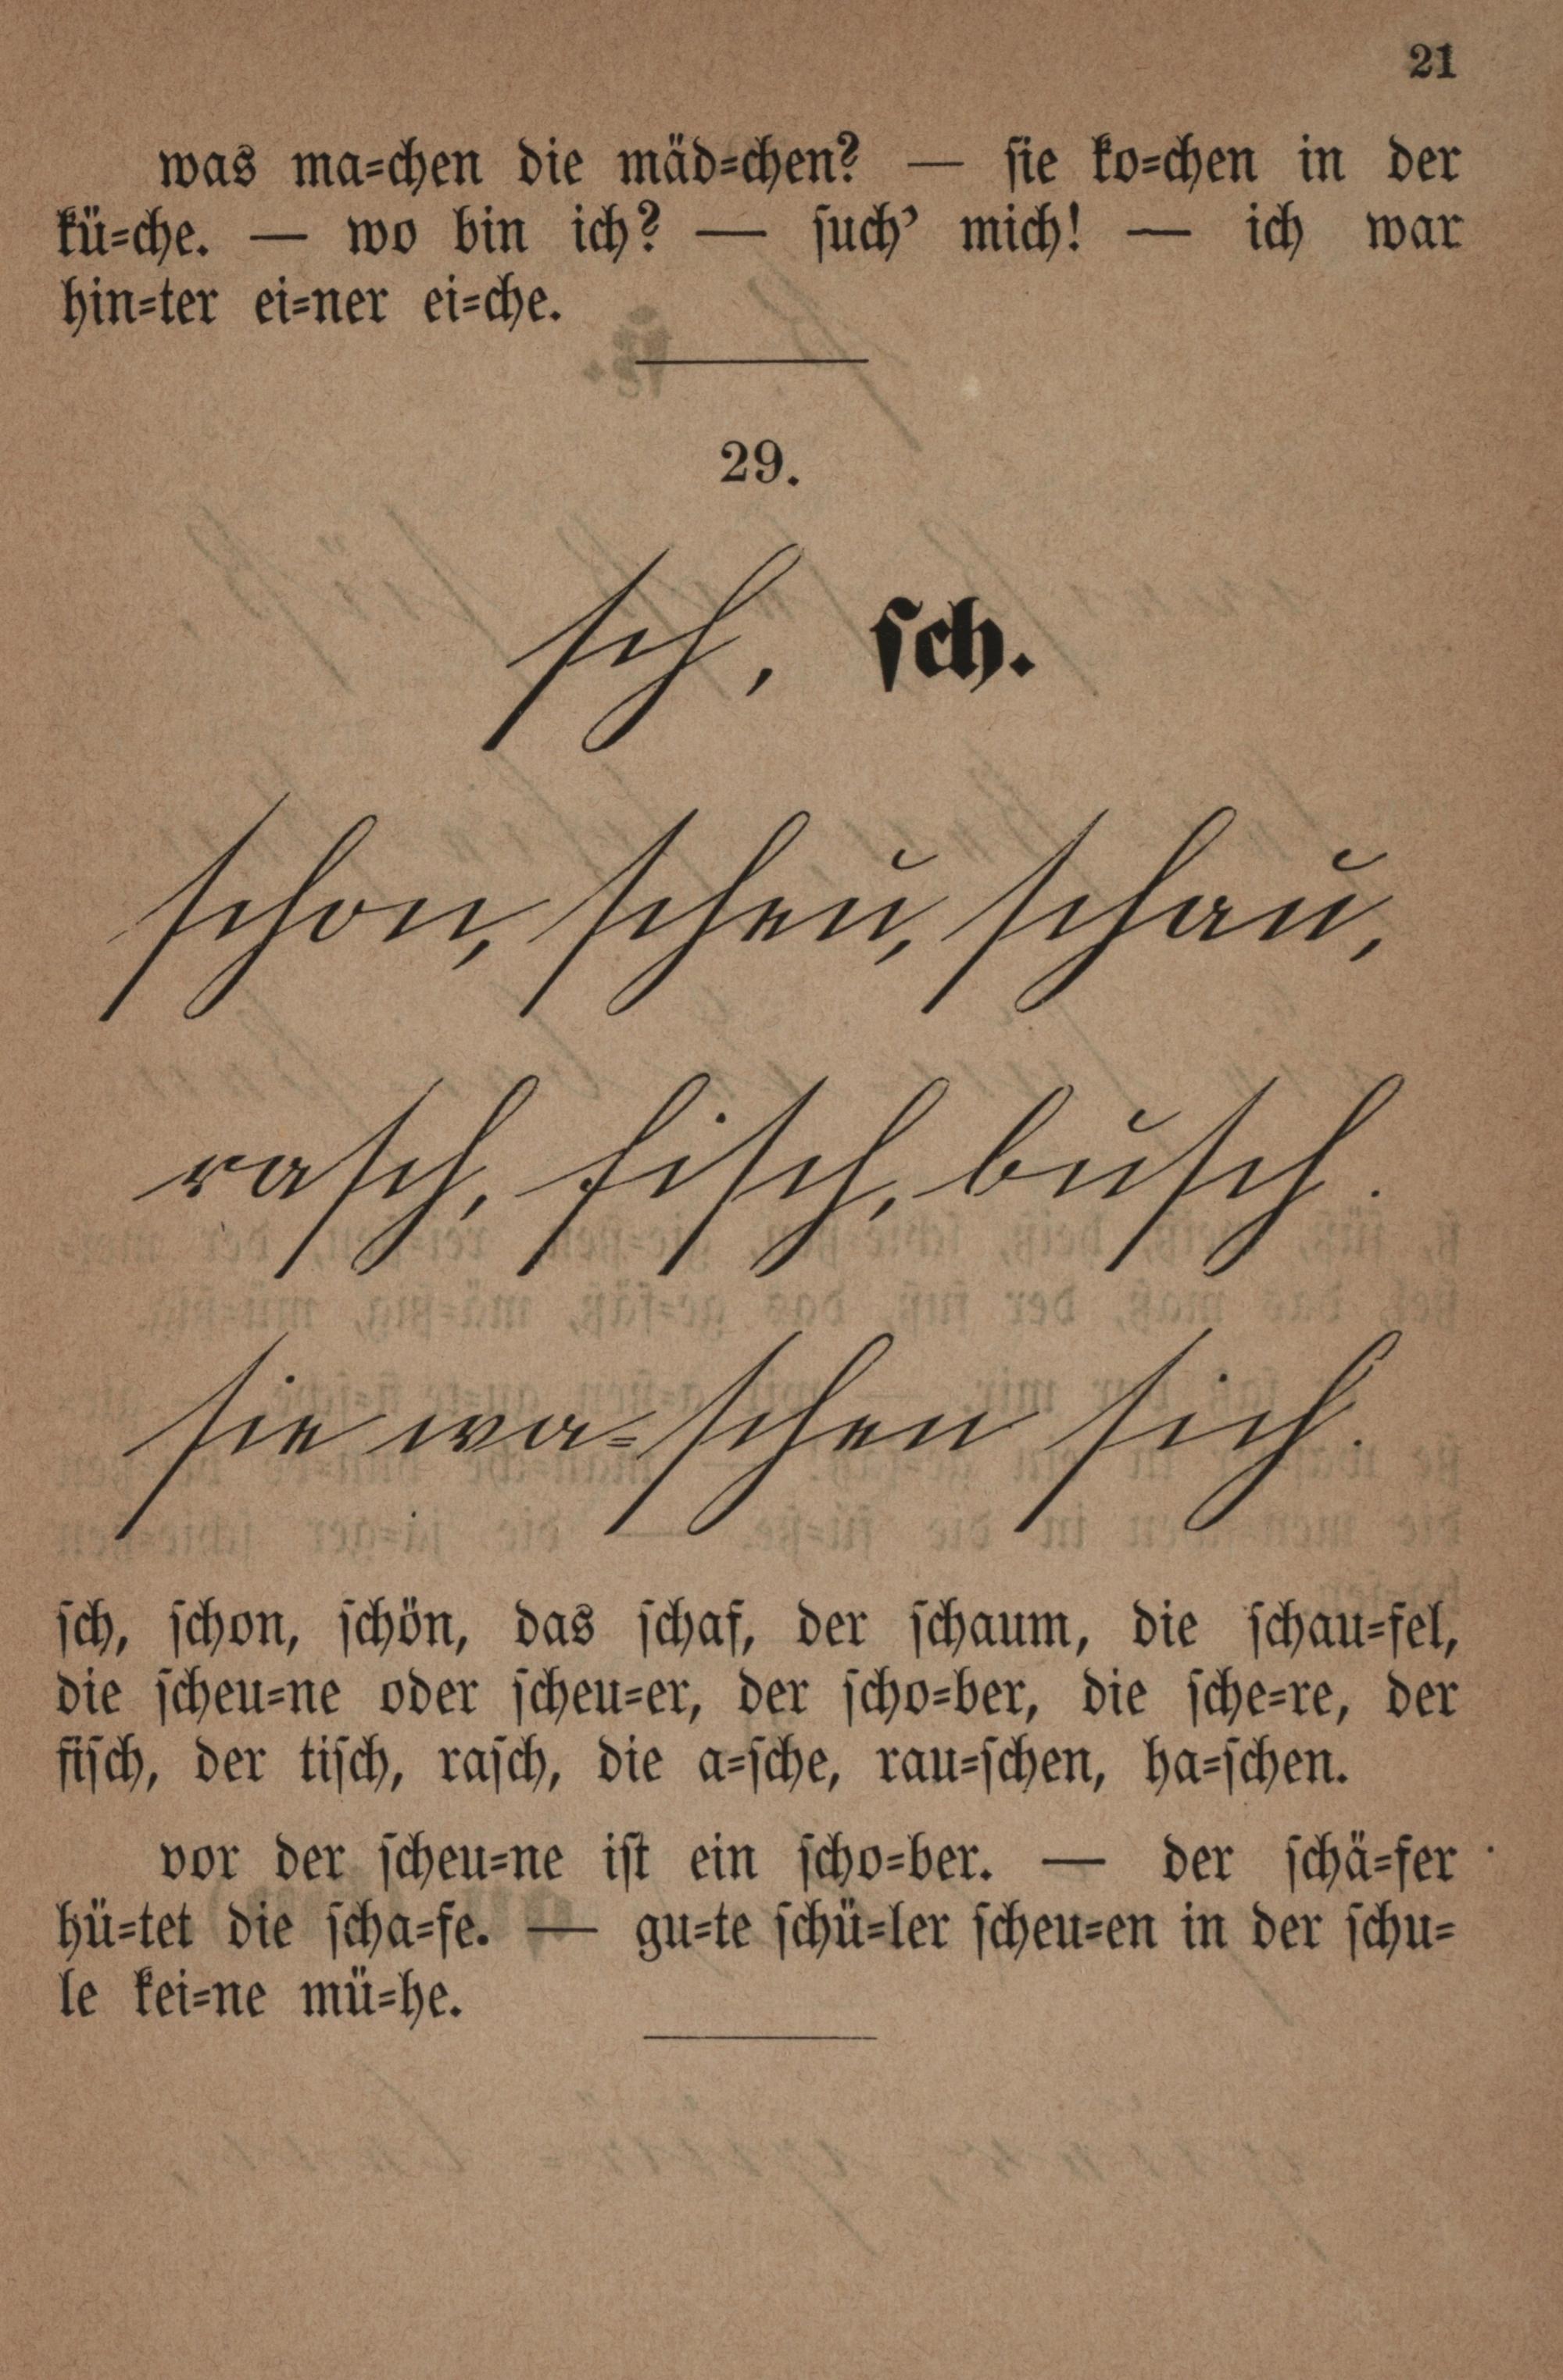 21
was ma=chen die mäd=chen? — ſie ko=chen in der
kü=che. — wo bin ich? — ſuch’ mich! — ich war
hin=ter ei=ner ei=che.
29.
ſch, ſch.
ſchon, ſcheu, ſchau,
raſch, fiſch, buſch.
ſie wa=ſchen ſich.
ſch, ſchon, ſchön, das ſchaf, der ſchaum, die ſchau=fel,
die ſcheu=ne oder ſcheu=er, der ſcho=ber, die ſche=re, der
fiſch, der tiſch, raſch, die a=ſche, rau=ſchen, ha=ſchen.
vor der ſcheu=ne iſt ein ſcho=ber. — der ſchä=fer
hü=tet die ſcha=fe. — gu=te ſchü=ler ſcheu=en in der ſchu=
le kei=ne mü=he.